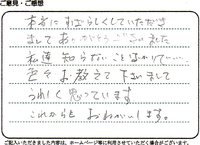 ご意見・ご感想
本当にすばらしくしていただき
ましてありがとうございました
私達知らないことばかりで……
色々お教えて下さいまして
うれしく思っています
これからも おねがいします。
ご記入いただきました内容は、ホームページ等に利用させていただく場合がございます。